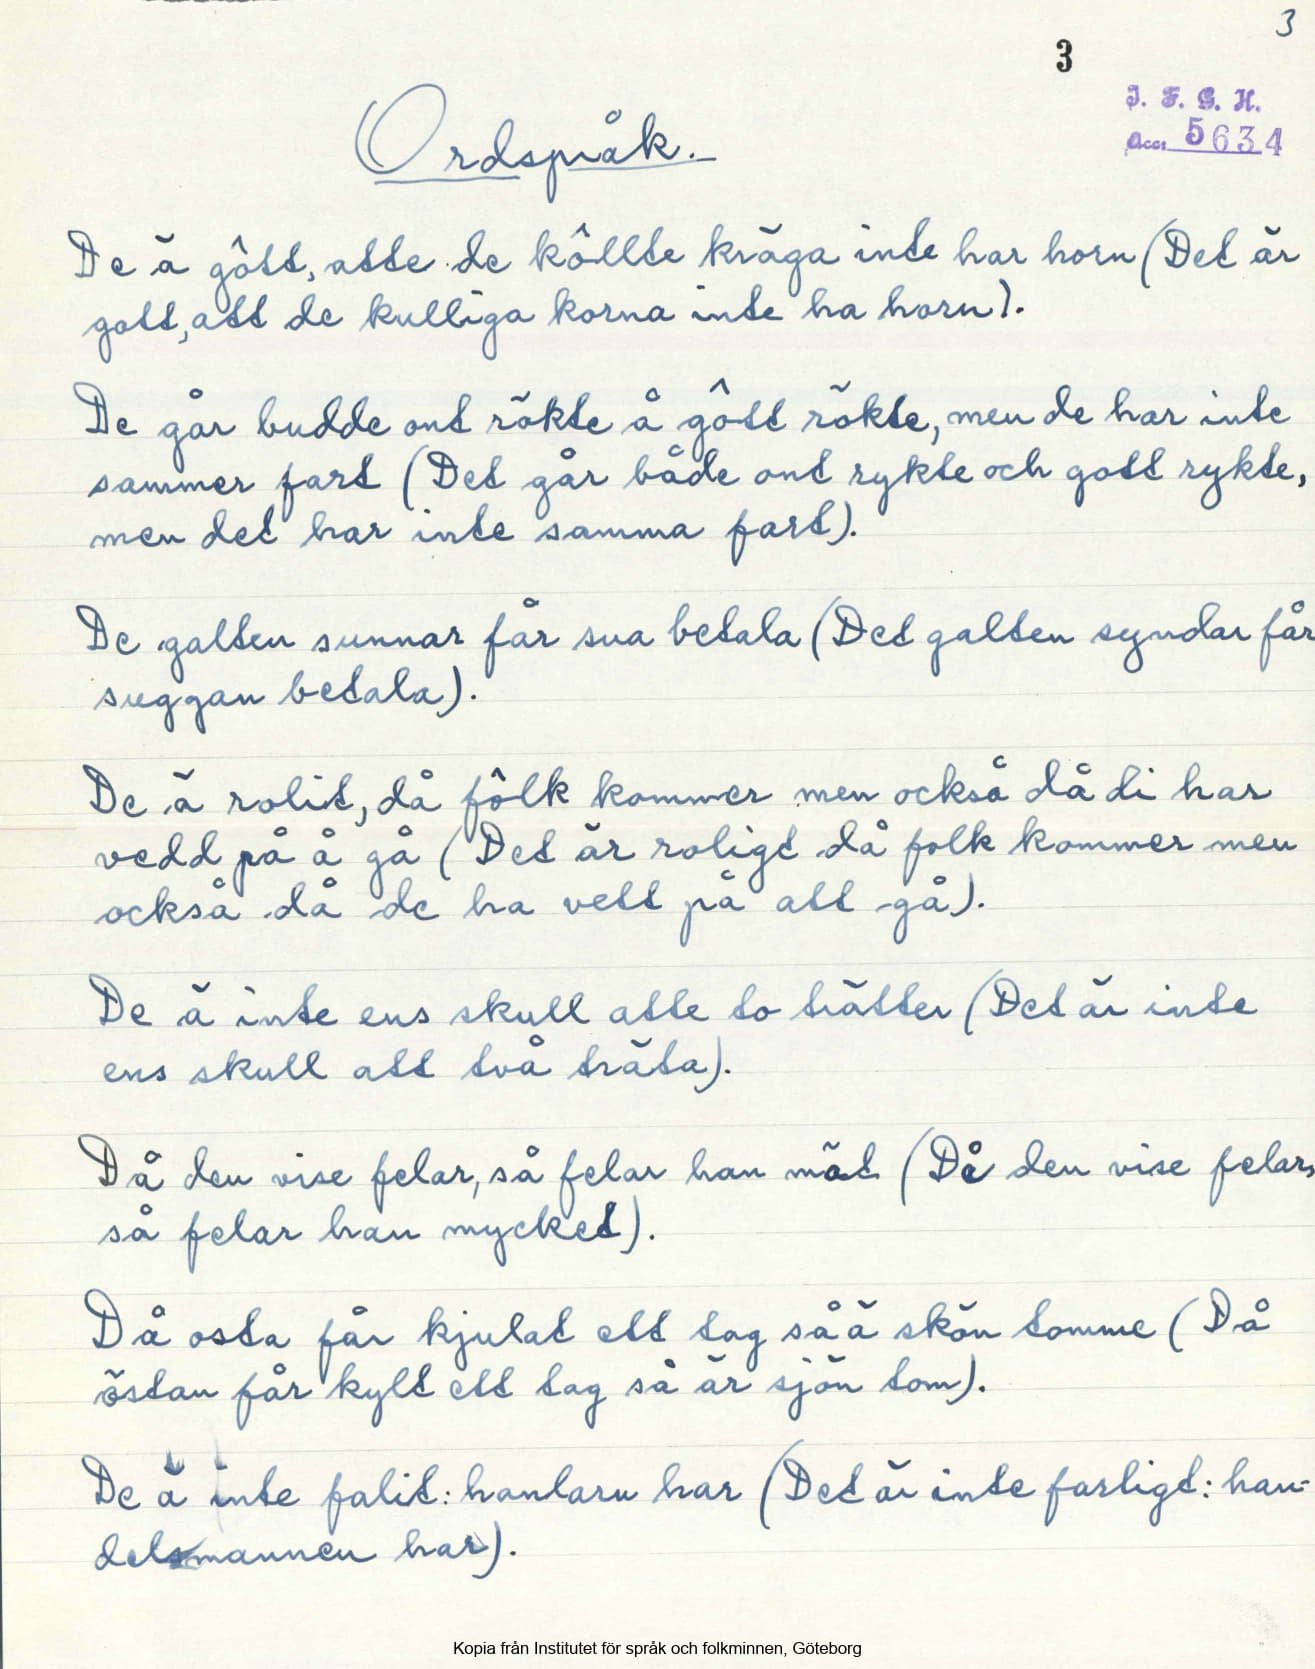 3
3
I. F. G. H.
Acc. 5634
Ordspråk.
De ä gôtt, atte de kôllte kräga inte har horn (Det är
gott, att de kulliga korna inte ha horn).
De går budde ont rökte å gôtt rökte, men de har inte
sammer fart (Det går både ont rykte och gott rykte,
men det har inte samma fart).
De galten sunnar får sua betala (Det galten syndar får
suggan betala).
De ä rolit, då fôlk kommer men också då di har
vedd på å gå (Det är roligt då folk kommer men
också då de ha vett på att gå).
De ä inte ens skull atte to trätter (Det är inte
ens skull att två träta).
Då den vise felar, så felar han möet (Då den vise felar,
så felar han mycket).
Då osta får kjulat ett tag så ä skön tomme (Då
östan får kylt ett tag så är sjön tom).
De ä inte falit: hanlarn har (Det är inte farligt: han-
delsmannen har).
Kopia från Institutet för språk och folkminnen, Göteborg